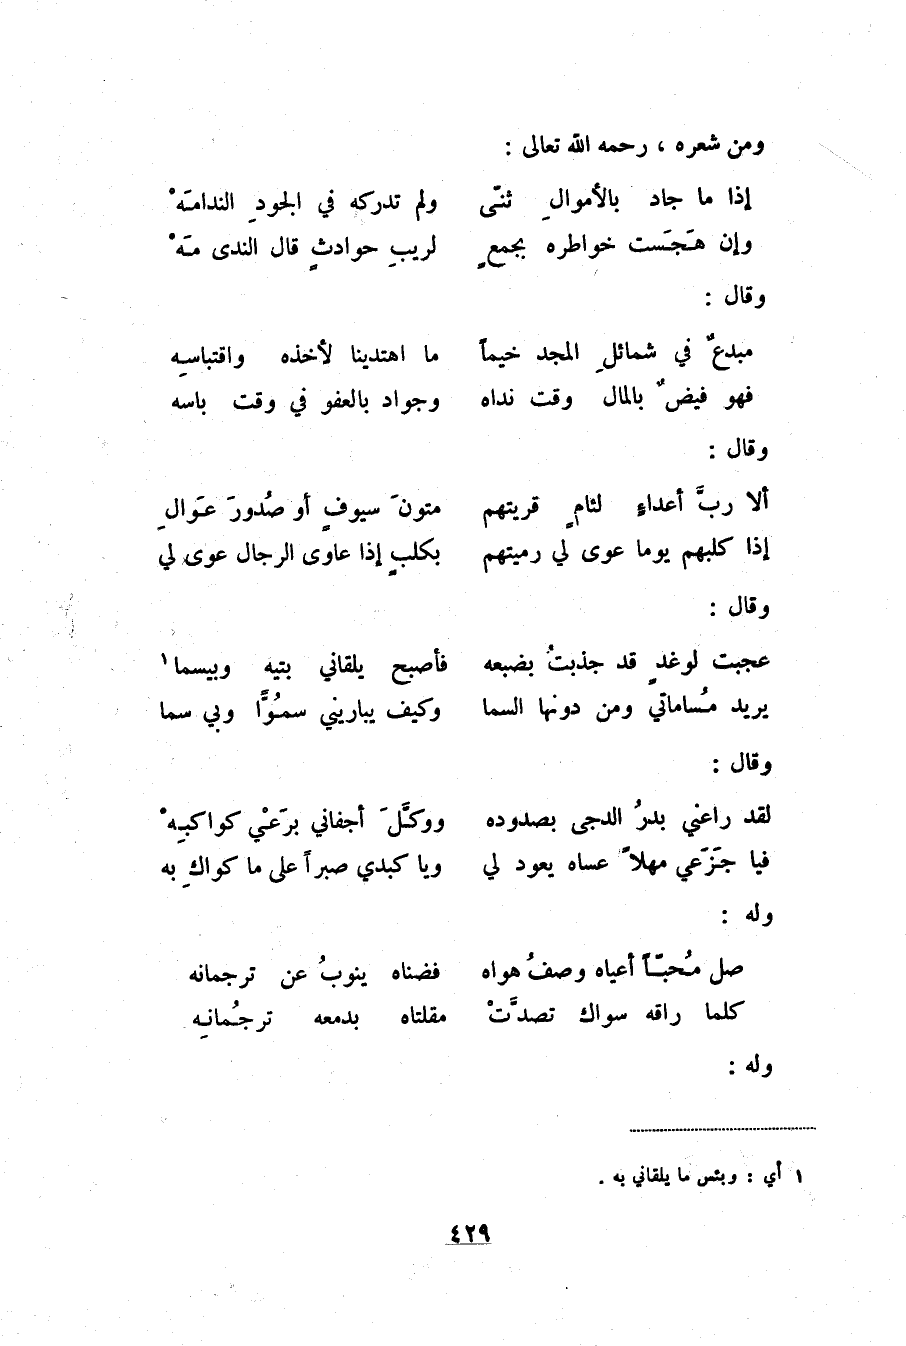 ومن شعره ، رحمه الله تعالى :
إذا ما جاد بالأموالِ ثنّى ولم تدركه في الجودِ الندامَهْ
وإن هَجَست خواطره بجمعٍ لريبِ حوادثٍ قال الندى مَهْ
وقال :
مبدعٌ في شمائلِ المجد خيماً ما اهتدينا لأخذه واقتباسِه
فهو فيضٌ بالمال وقت نداه وجواد بالعفو في وقت باسه
وقال :
ألا ربَّ أعداءٍ لئامٍ قريتهم متونَ سيوفٍ أو صُدورَ عَوالِ
إذا كلبهم يوما عوى لي رميتهم بكلبٍ إذا عاوى الرجال عوى لي
وقال :
عجبت لوغدٍ قد جذبتُ بضبعه فأصبح يلقاني بتيه وبيسما١
يريد مُساماتي ومن دونها السما وكيف يباريني سمُوّاً وبي سما
وقال :
لقد راعني بدرُ الدجى بصدوده ووكَّلَ أجفاني برَعْي كواكبِهْ
فيا جَزَعي مهلاً عساه يعود لي ويا كبدي صبراً على ما كواكِ به
وله :
صل مُحبّاً أعياه وصفُ هواه فضناه ينوبُ عن ترجمانه
كلما راقه سواك تصدَّتْ مقلتاه بدمعه ترجُمانِه
وله :
١ أي : وبئس ما يلقاني به .
٤٢٩